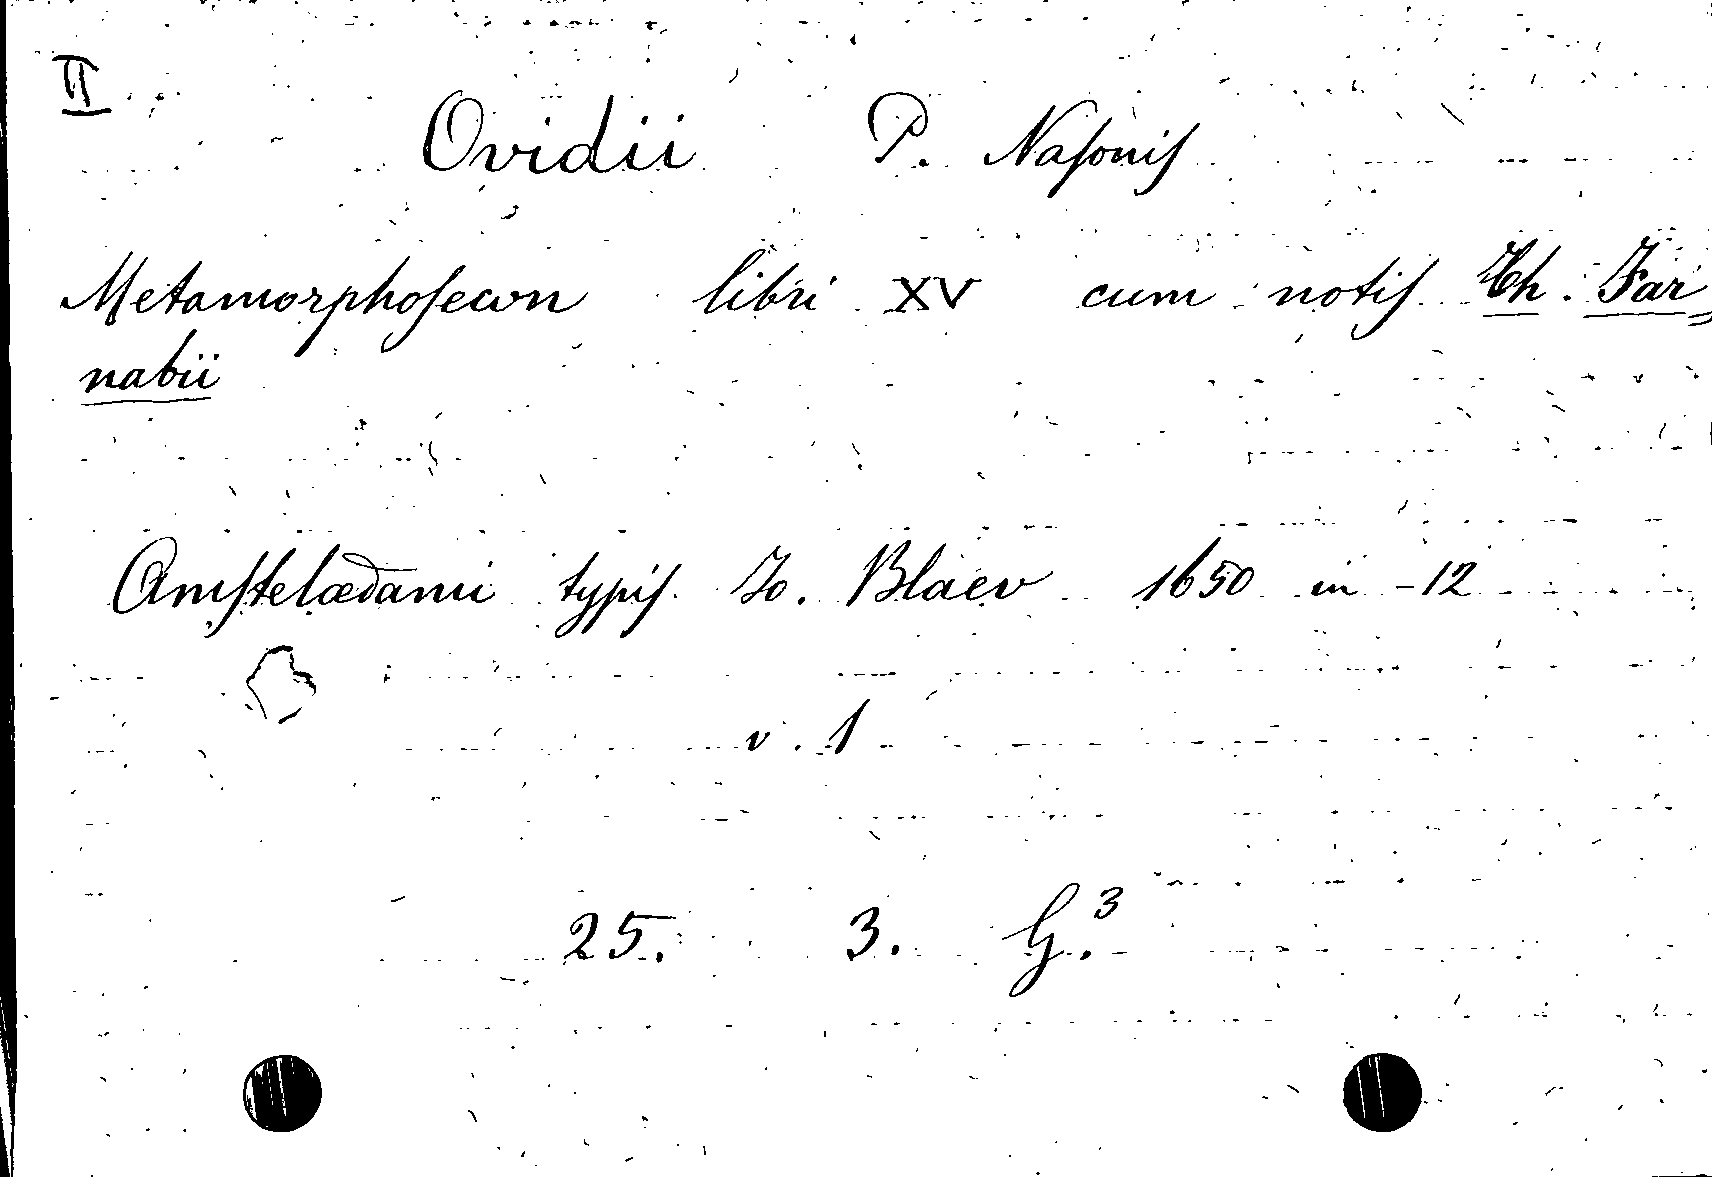 II
Ovidii P. Nasonis
Metamorphoseωn libri XV cum notis Th. Far=
nabii
Amstelædami typis Jo. Blaev 1650 in -12
v. 1
25. 3. G.³